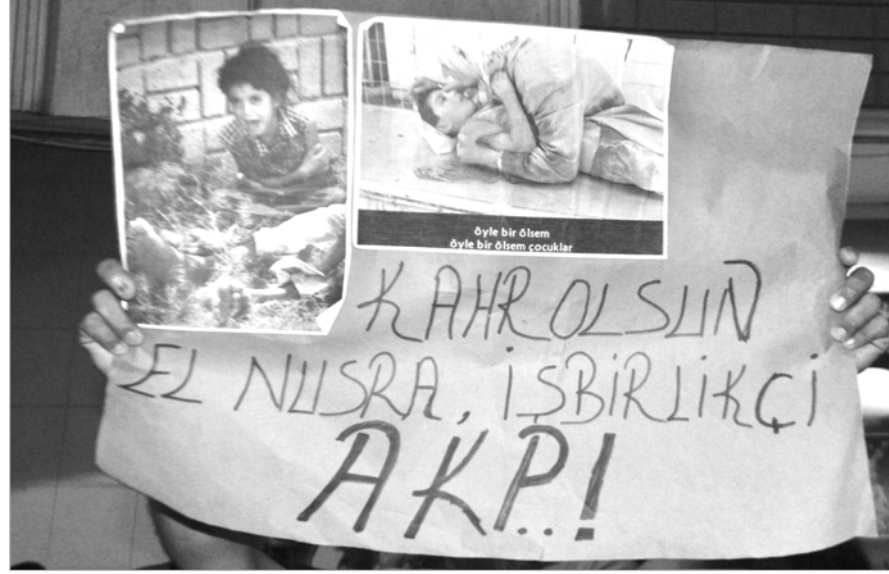 öyle bir ölsem
öyle bir ölsem çocuklar
KAHR OLSUN
EL NUSRA, İŞBİRLİKÇİ
AKP..!